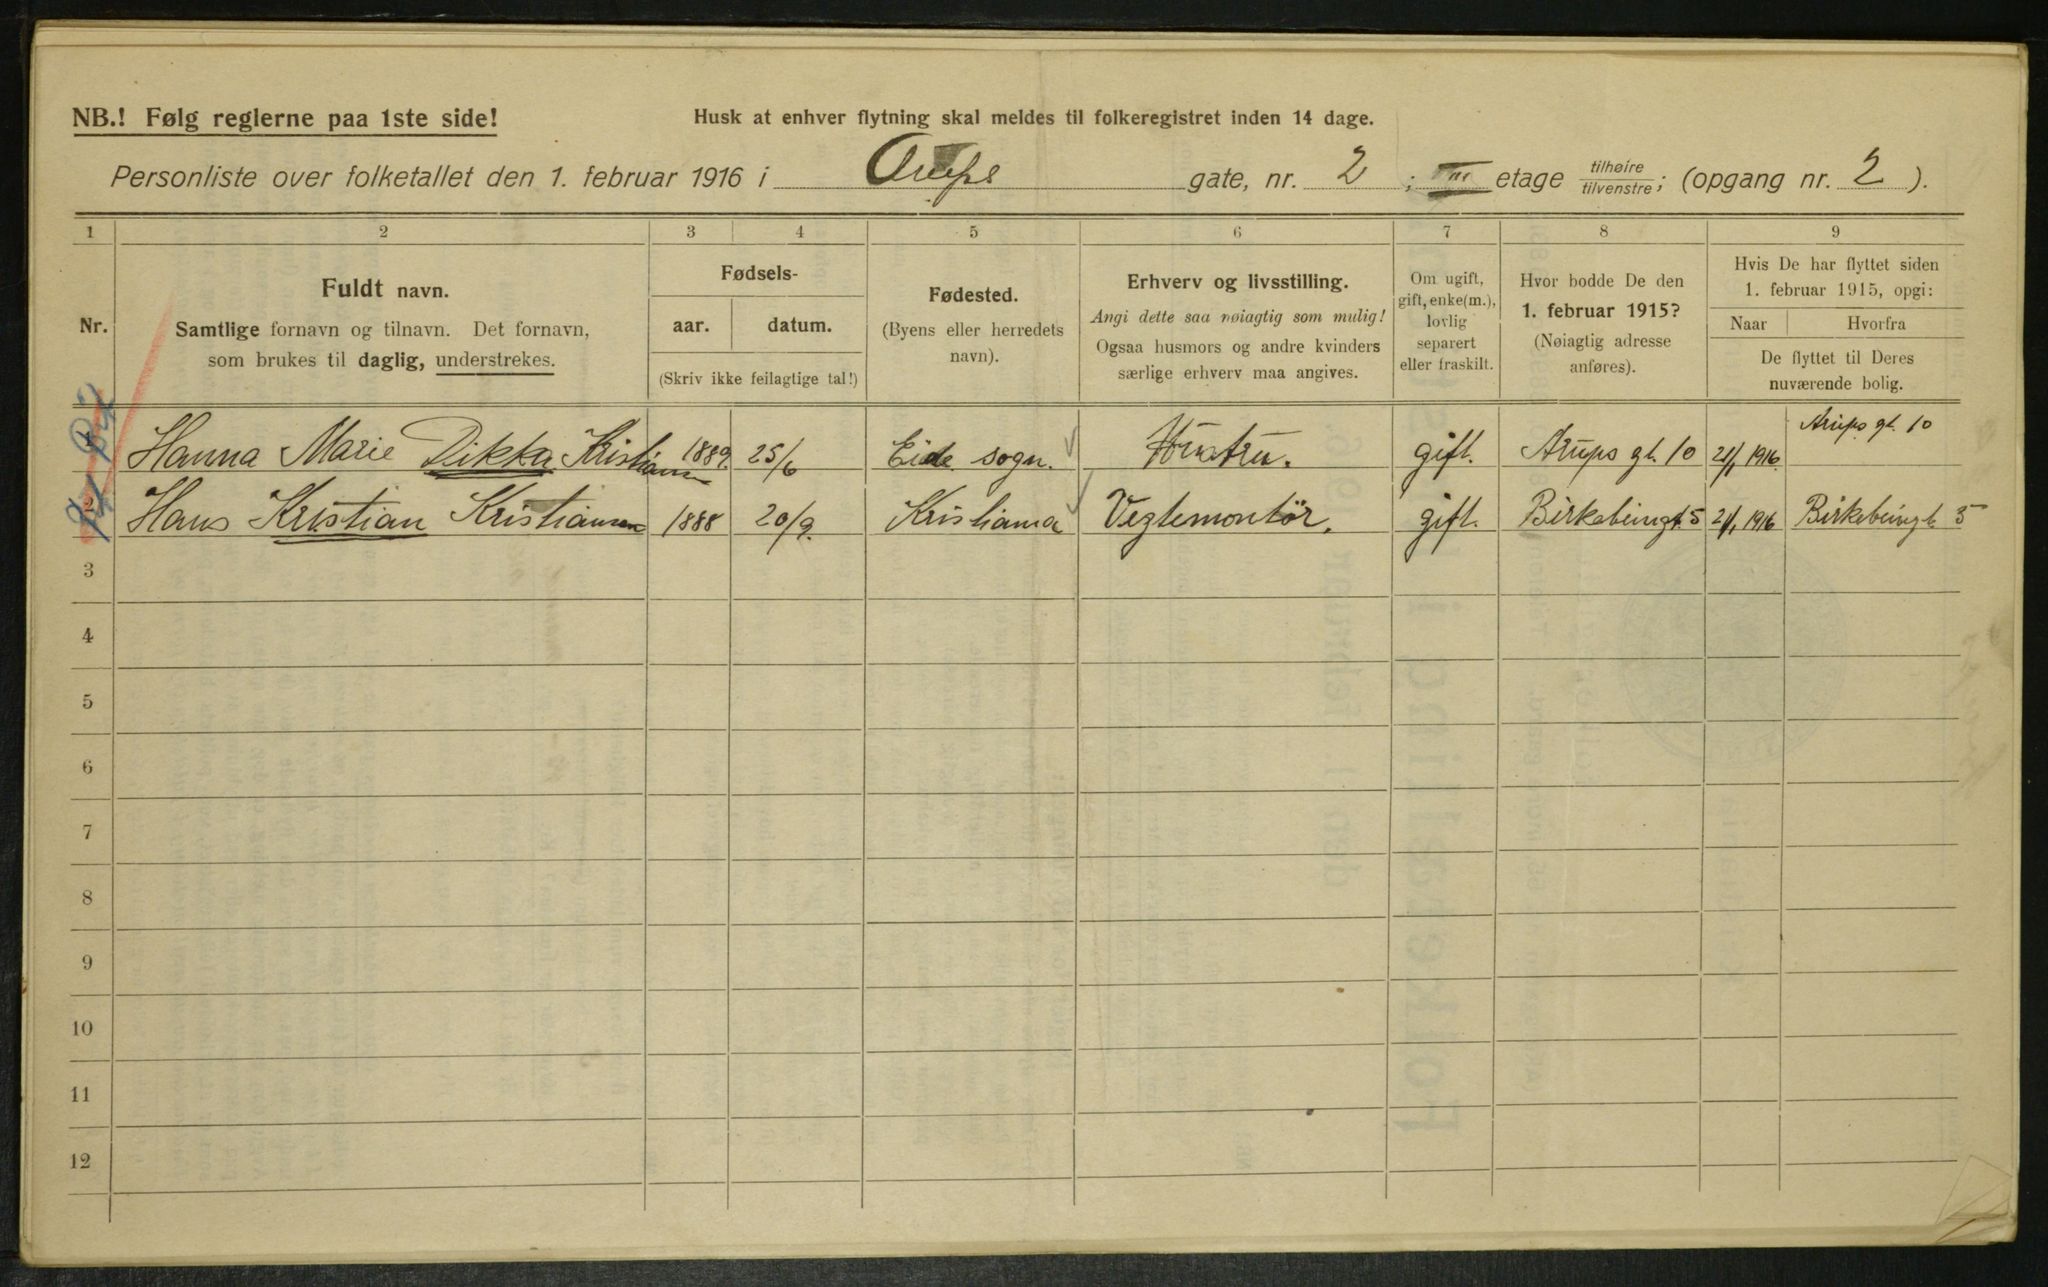 NB.! Følg reglerne paa 1ste side!
Husk at enhver flytning skal meldes til folkeregistret inden 14 dage.
Personliste over folketallet den 1. februar 1916 i Arups gate, nr. 2 ; III etage tilhøire/tilvenstre; (opgang nr. 2 ).
1 2 3 4 5 6 7 8 9
Nr.
Fuldt navn.
Samtlige fornavn og tilnavn. Det fornavn,
som brukes til daglig, understrekes.
Fødsels-
aar. datum.
(Skriv ikke feilagtige tal!)
Fødested.
(Byens eller herredets
navn).
Erhverv og livsstilling.
Angi dette saa nøiagtig som mulig!
Ogsaa husmors og andre kvinders
særlige erhverv maa angives.
Om ugift,
gift, enke(m.),
lovlig
separert
eller fraskilt.
Hvor bodde De den
1. februar 1915?
(Nøiagtig adresse
anføres).
Hvis De har flyttet siden
1. februar 1915, opgi:
Naar Hvorfra
De flyttet til Deres
nuværende bolig.
1 Hanna Marie Dikka Kristiansen 1889. 25/6 Eide sogn. Hustru. gift. Arups gt. 10 21/1 1916 Arups gt. 10
2 Hans Kristian Kristiansen 1888 20/9. Kristiania Vegtemontör. gift. Birkebeingt. 5 21/1 1916 Birkebeingt 5
3
4
5
6
7
8
9
10
11
12